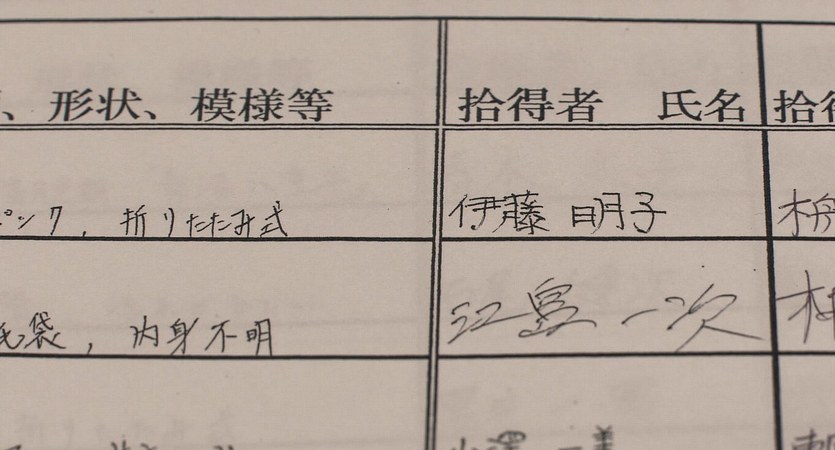 、形状、模様等 拾得者 氏名 拾得
ピンク，折りたたみ式 伊藤 明子
紙袋，内身不明 江島 一次